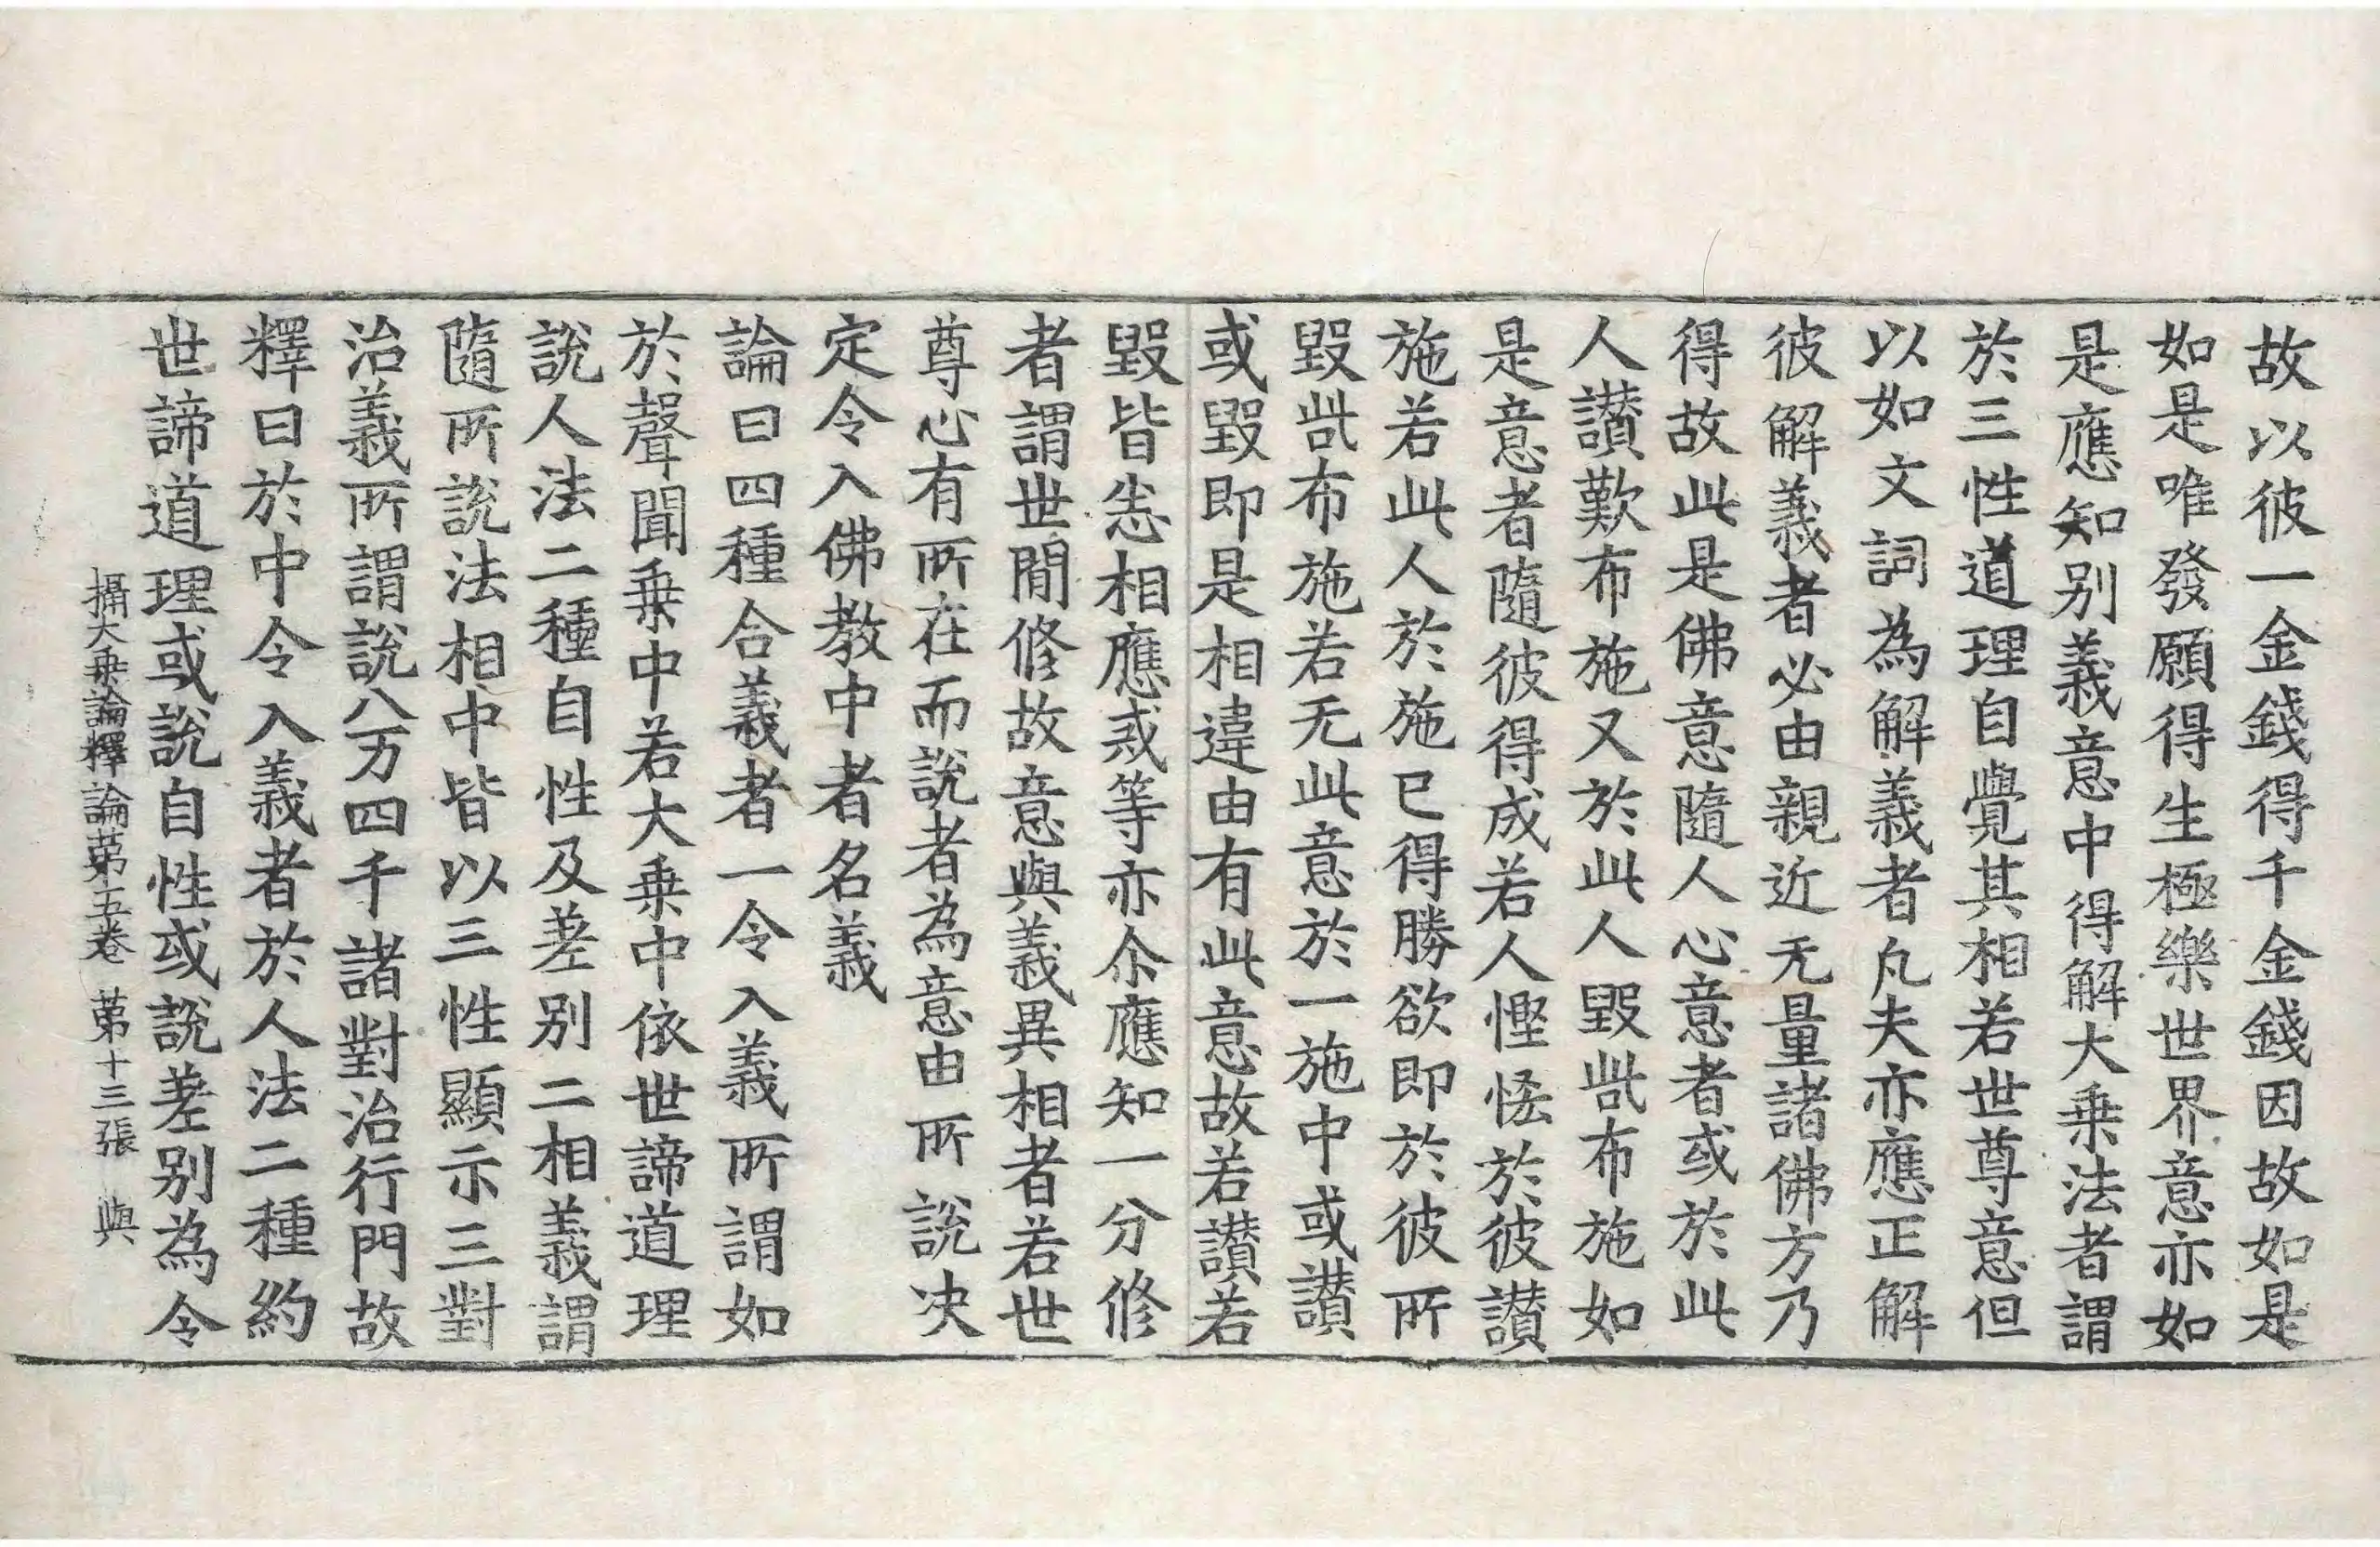 故以彼一金錢得千金錢因故如是
如是唯發願得生極樂世界意亦如
是應知别義意中得解大乗法者謂
於三性道理自覺其相若世尊意但
以如文詞為解義者凡夫亦應正解
彼解義者必由親近无量諸佛方乃
得故此是佛意隨人心意者或於此
人讃歎布施又於此人毀呰布施如
是意者隨彼得成若人慳悋於彼讃
施若此人於施已得勝欲即於彼所
毀呰布施若无此意於一施中或讃
或毀即是相違由有此意故若讃若
毀皆悉相應戒等亦尒應知一分修
者謂世間修故意與義異相者若世
尊心有所在而說者為意由所說决
定令入佛教中者名義
論曰四種合義者一令入義所謂如
於聲聞乗中若大乗中依世諦道理
說人法二種自性及差别二相義謂
隨所說法相中皆以三性顯示三對
治義所謂說八万四千諸對治行門故
釋曰於中令入義者於人法二種約
世諦道理或說自性或說差别為令
攝大乗論釋論苐五卷 苐十三張 與